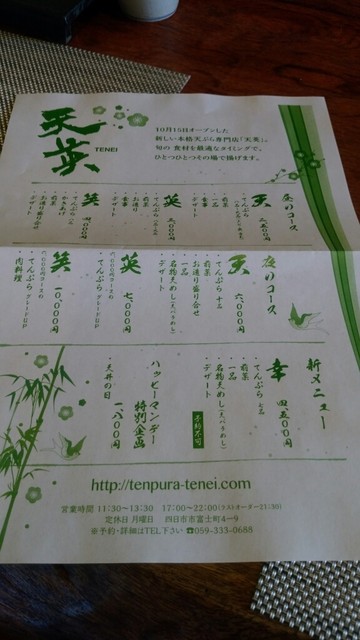 天英
TENEI
10月15日オープンした
新しい本格天ぷら専門店「天英」。
旬の食材を最適なタイミングで、
ひとつひとつその場で揚げます。
昼のコース
天
・前菜
・一品
・食事
・デザート
英
・前菜
・お造り
・食事
・デザート
笑
四、〇〇〇円
・前菜
・デザート
夜のコース
天
六、〇〇〇円
・てんぷら 十品
・前菜
・一品
・お造り盛り合せ
・名物天めし(天バラめし)
・デザート
英
七、〇〇〇円
・てんぷらグレードUP
笑
一〇、〇〇〇円
・てんぷらグレードUP
・肉料理
新メニュー
幸
四、五〇〇円
・てんぷら 七品
・前菜
・一品
・名物天めし(天バラめし)
・デザート
予約不可
ハッピーマンデー
特別企画
・天丼の日
一、八〇〇円
http://tenpura-tenei.com
営業時間 11:30~13:30 17:00~22:00(ラストオーダー21:30)
定休日 月曜日 四日市市富士町4ー9
※予約・詳細はTEL下さい ☎059-333-0688